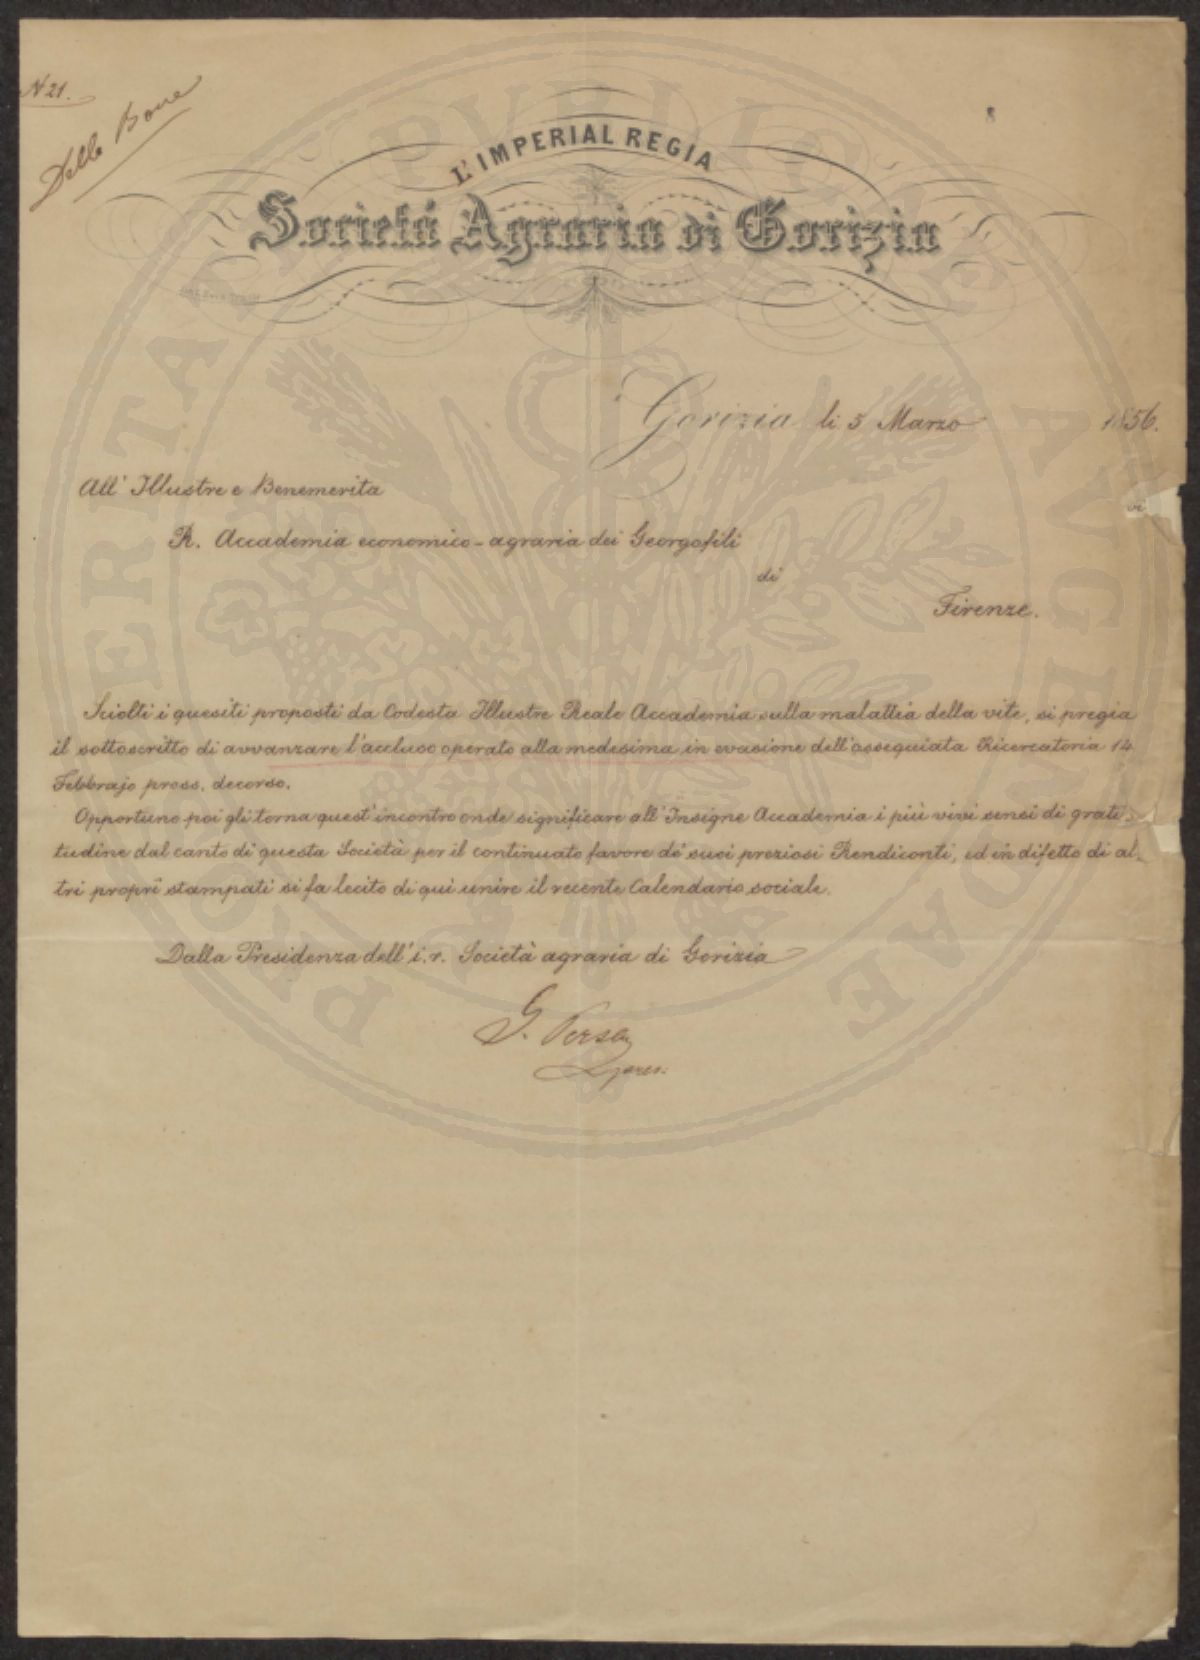 N 21.
Della Bona
L'IMPERIAL REGIA
Societá Agraria di Gorizia
Gorizia li 5 Marzo 1856.
All' Illustre e Benemerita
R. Accademia economico-agraria dei Georgofili
di
Firenze.
Sciolti i quesiti proposti da Codesta Illustre Reale Accademia sulla malattia della vite, si pregia
il sottoscritto di avvanzare l'accluso operato alla medesima in evasione dell'ossequiata Ricercatoria 14
Febbrajo pross. decorso.
Opportuno poi gli torna quest'incontro onde significare all'Insigne Accademia i più vivi sensi di grati-
tudine dal canto di questa Società per il continuato favore de' suoi preziosi Rendiconti, ed in difetto di al-
tri proprî stampati si fa lecito di quì unire il recente Calendario sociale.
Dalla Presidenza dell'i. r. Società agraria di Gorizia
G. Persa
pres.
PROSPERITATI PVBLICAE AVGENDAE